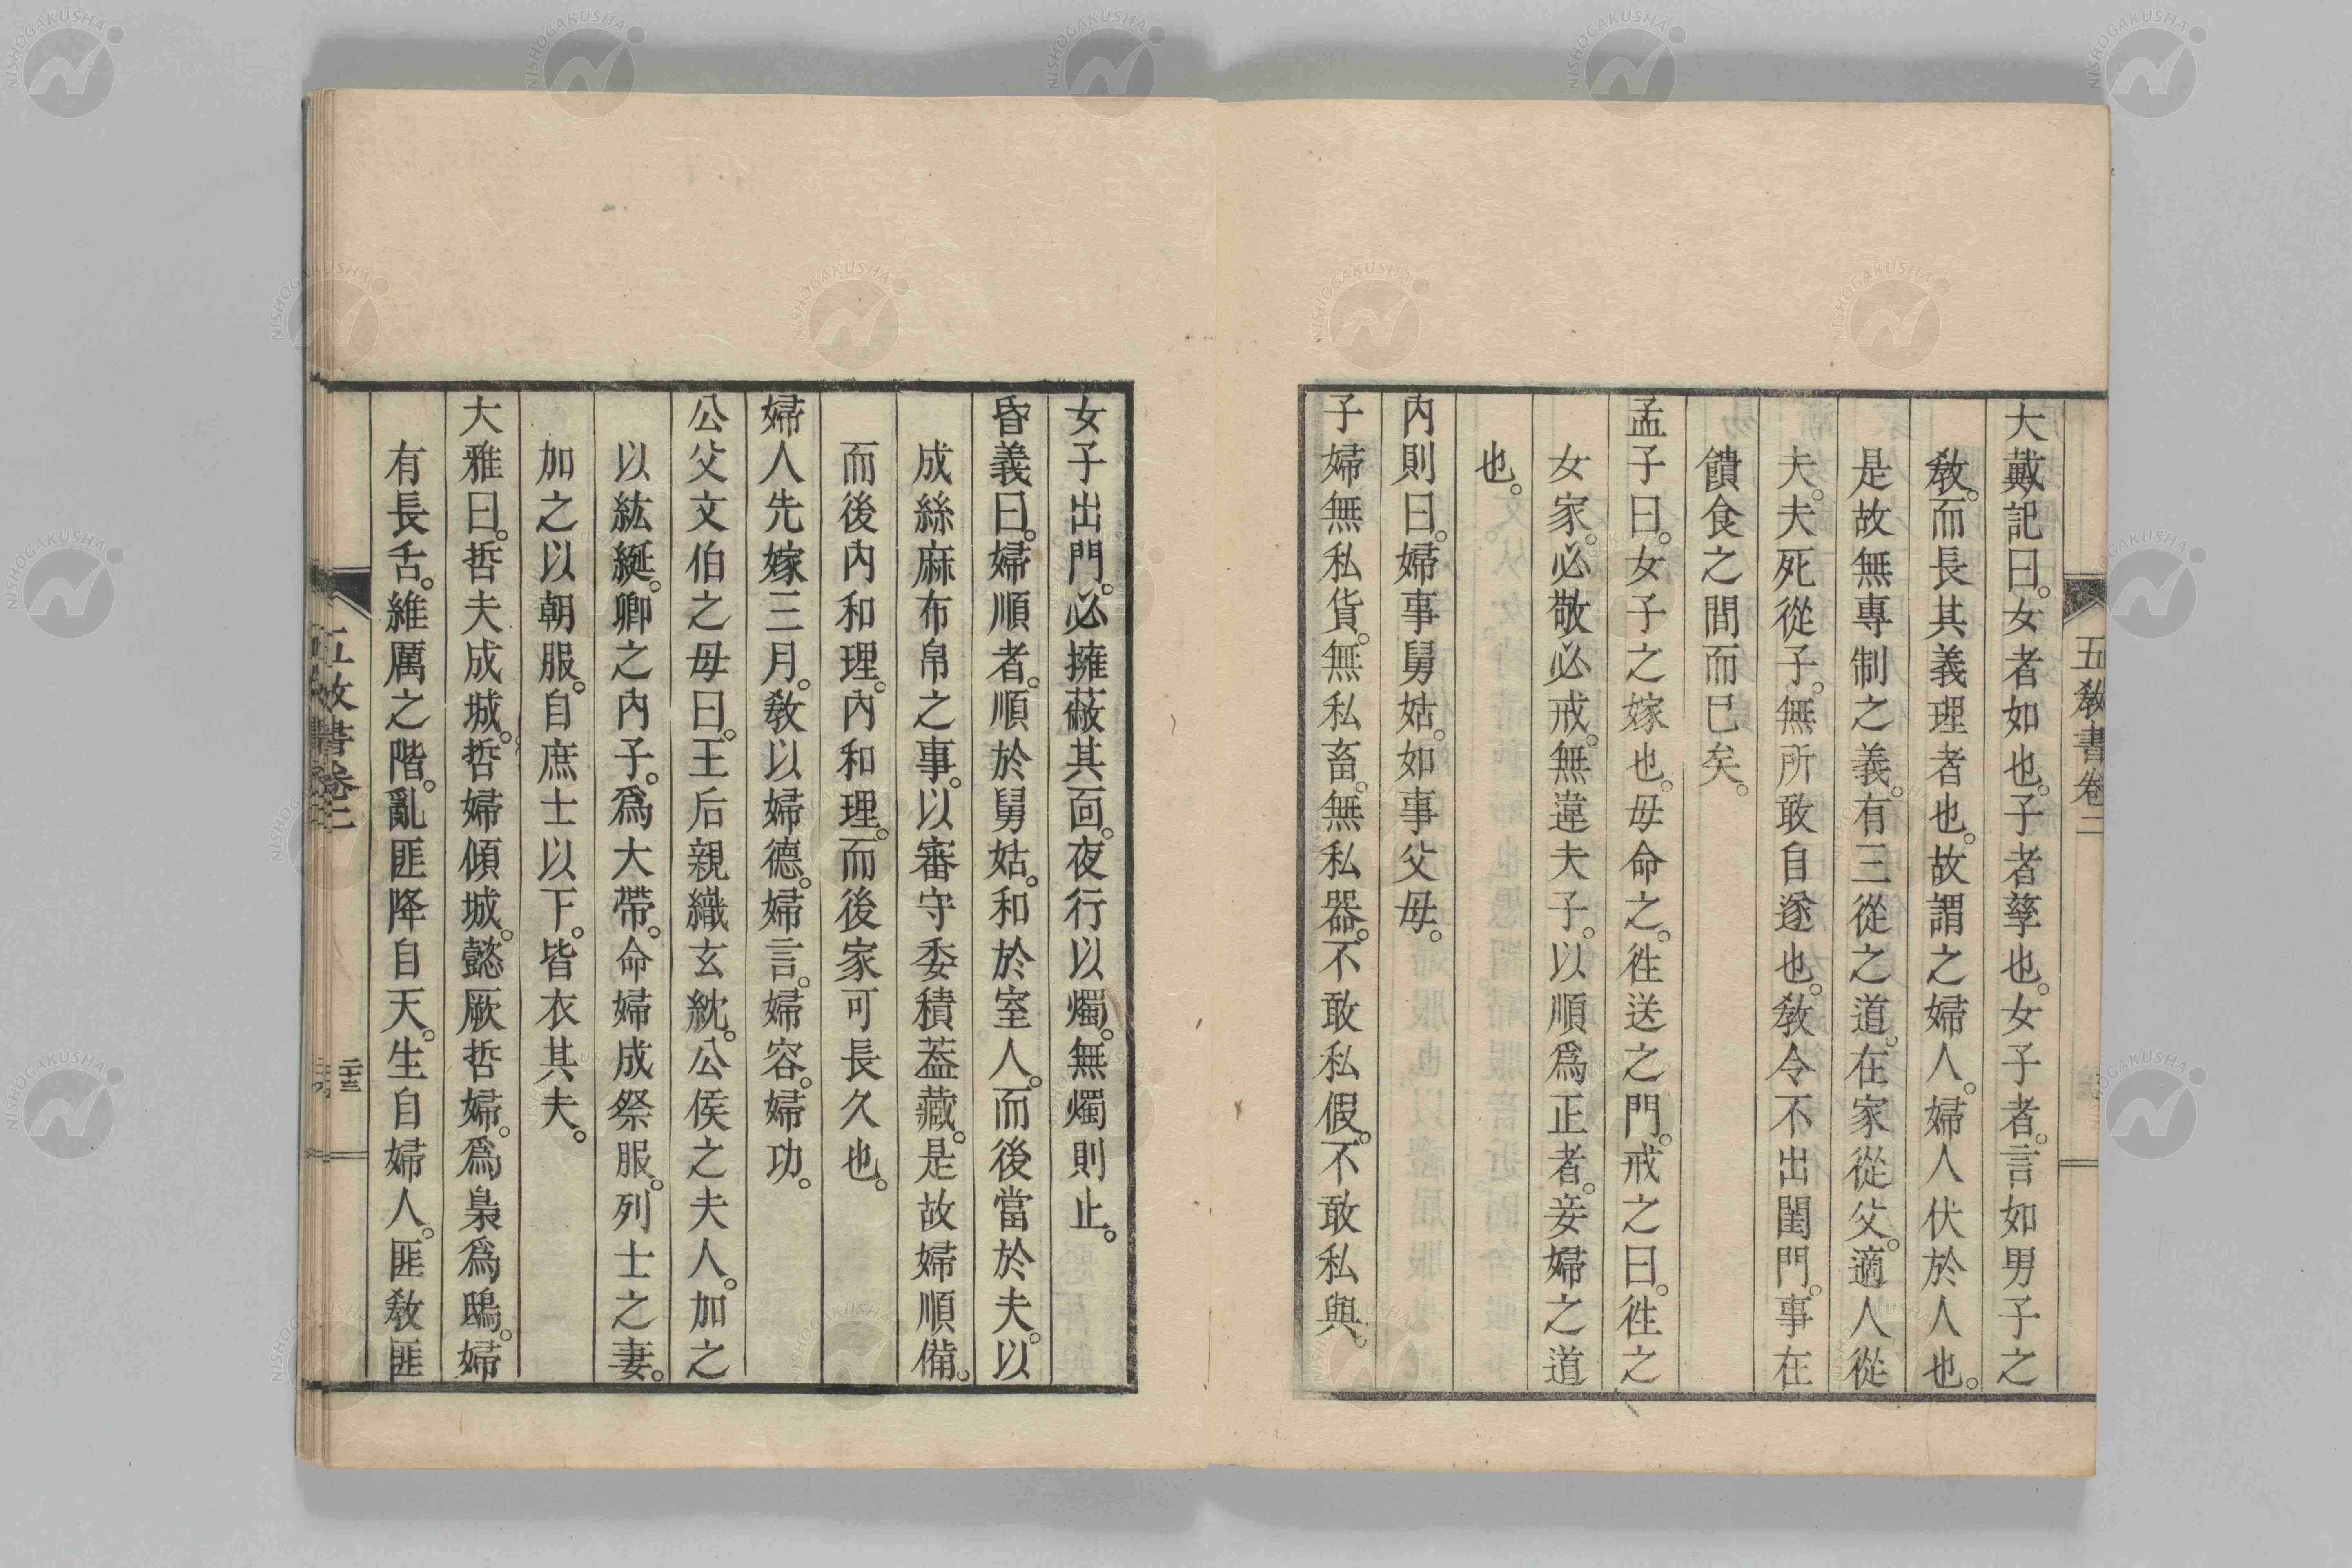 五敎書卷二
大戴記曰。女者如也。子者孳也。女子者。言如男子之
敎。而長其義理者也。故謂之婦人。婦人伏於人也。
是故無專制之義。有三從之道。在家從父。適人從
夫。夫死從子。無所敢自遂也。敎令不出閨門。事在
饋食之間而已矣。
孟子曰。女子之嫁也。母命之。徃送之門。戒之曰。徃之
女家。必敬必戒。無違夫子。以順爲正者。妾婦之道
也。
內則曰。婦事舅姑。如事父母。
子婦無私貨。無私畜。無私器。不敢私假。不敢私與。
女子出門。必擁蔽其面。夜行以燭。無燭則止。
昏義曰。婦順者。順於舅姑。和於室人。而後當於夫。以
成絲麻布帛之事。以審守委積蓋藏。是故婦順備。
而後內和理。內和理。而後家可長久也。
婦人先嫁三月。敎以婦德。婦言。婦容。婦功。
公父文伯之母曰。王后親織玄紞。公侯之夫人。加之
以紘綖。卿之內子。爲大帶。命婦成祭服。列士之妻。
加之以朝服。自庶士以下。皆衣其夫。
大雅曰。哲夫成城。哲婦傾城。懿厥哲婦。爲梟爲鴟。婦
有長舌。維厲之階。亂匪降自天。生自婦人。匪敎匪
五敎書卷二
NISHOGAKUSHA